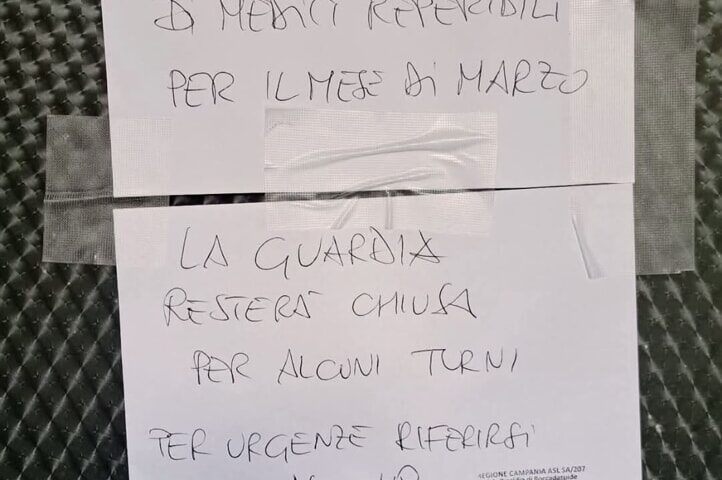 DI MEDICI REPERIBILI
PER IL MESE DI MARZO
LA GUARDIA
RESTERA' CHIUSA
PER ALCUNI TURNI
PER URGENZE RIFERIRSI
REGIONE CAMPANIA ASL SA/207